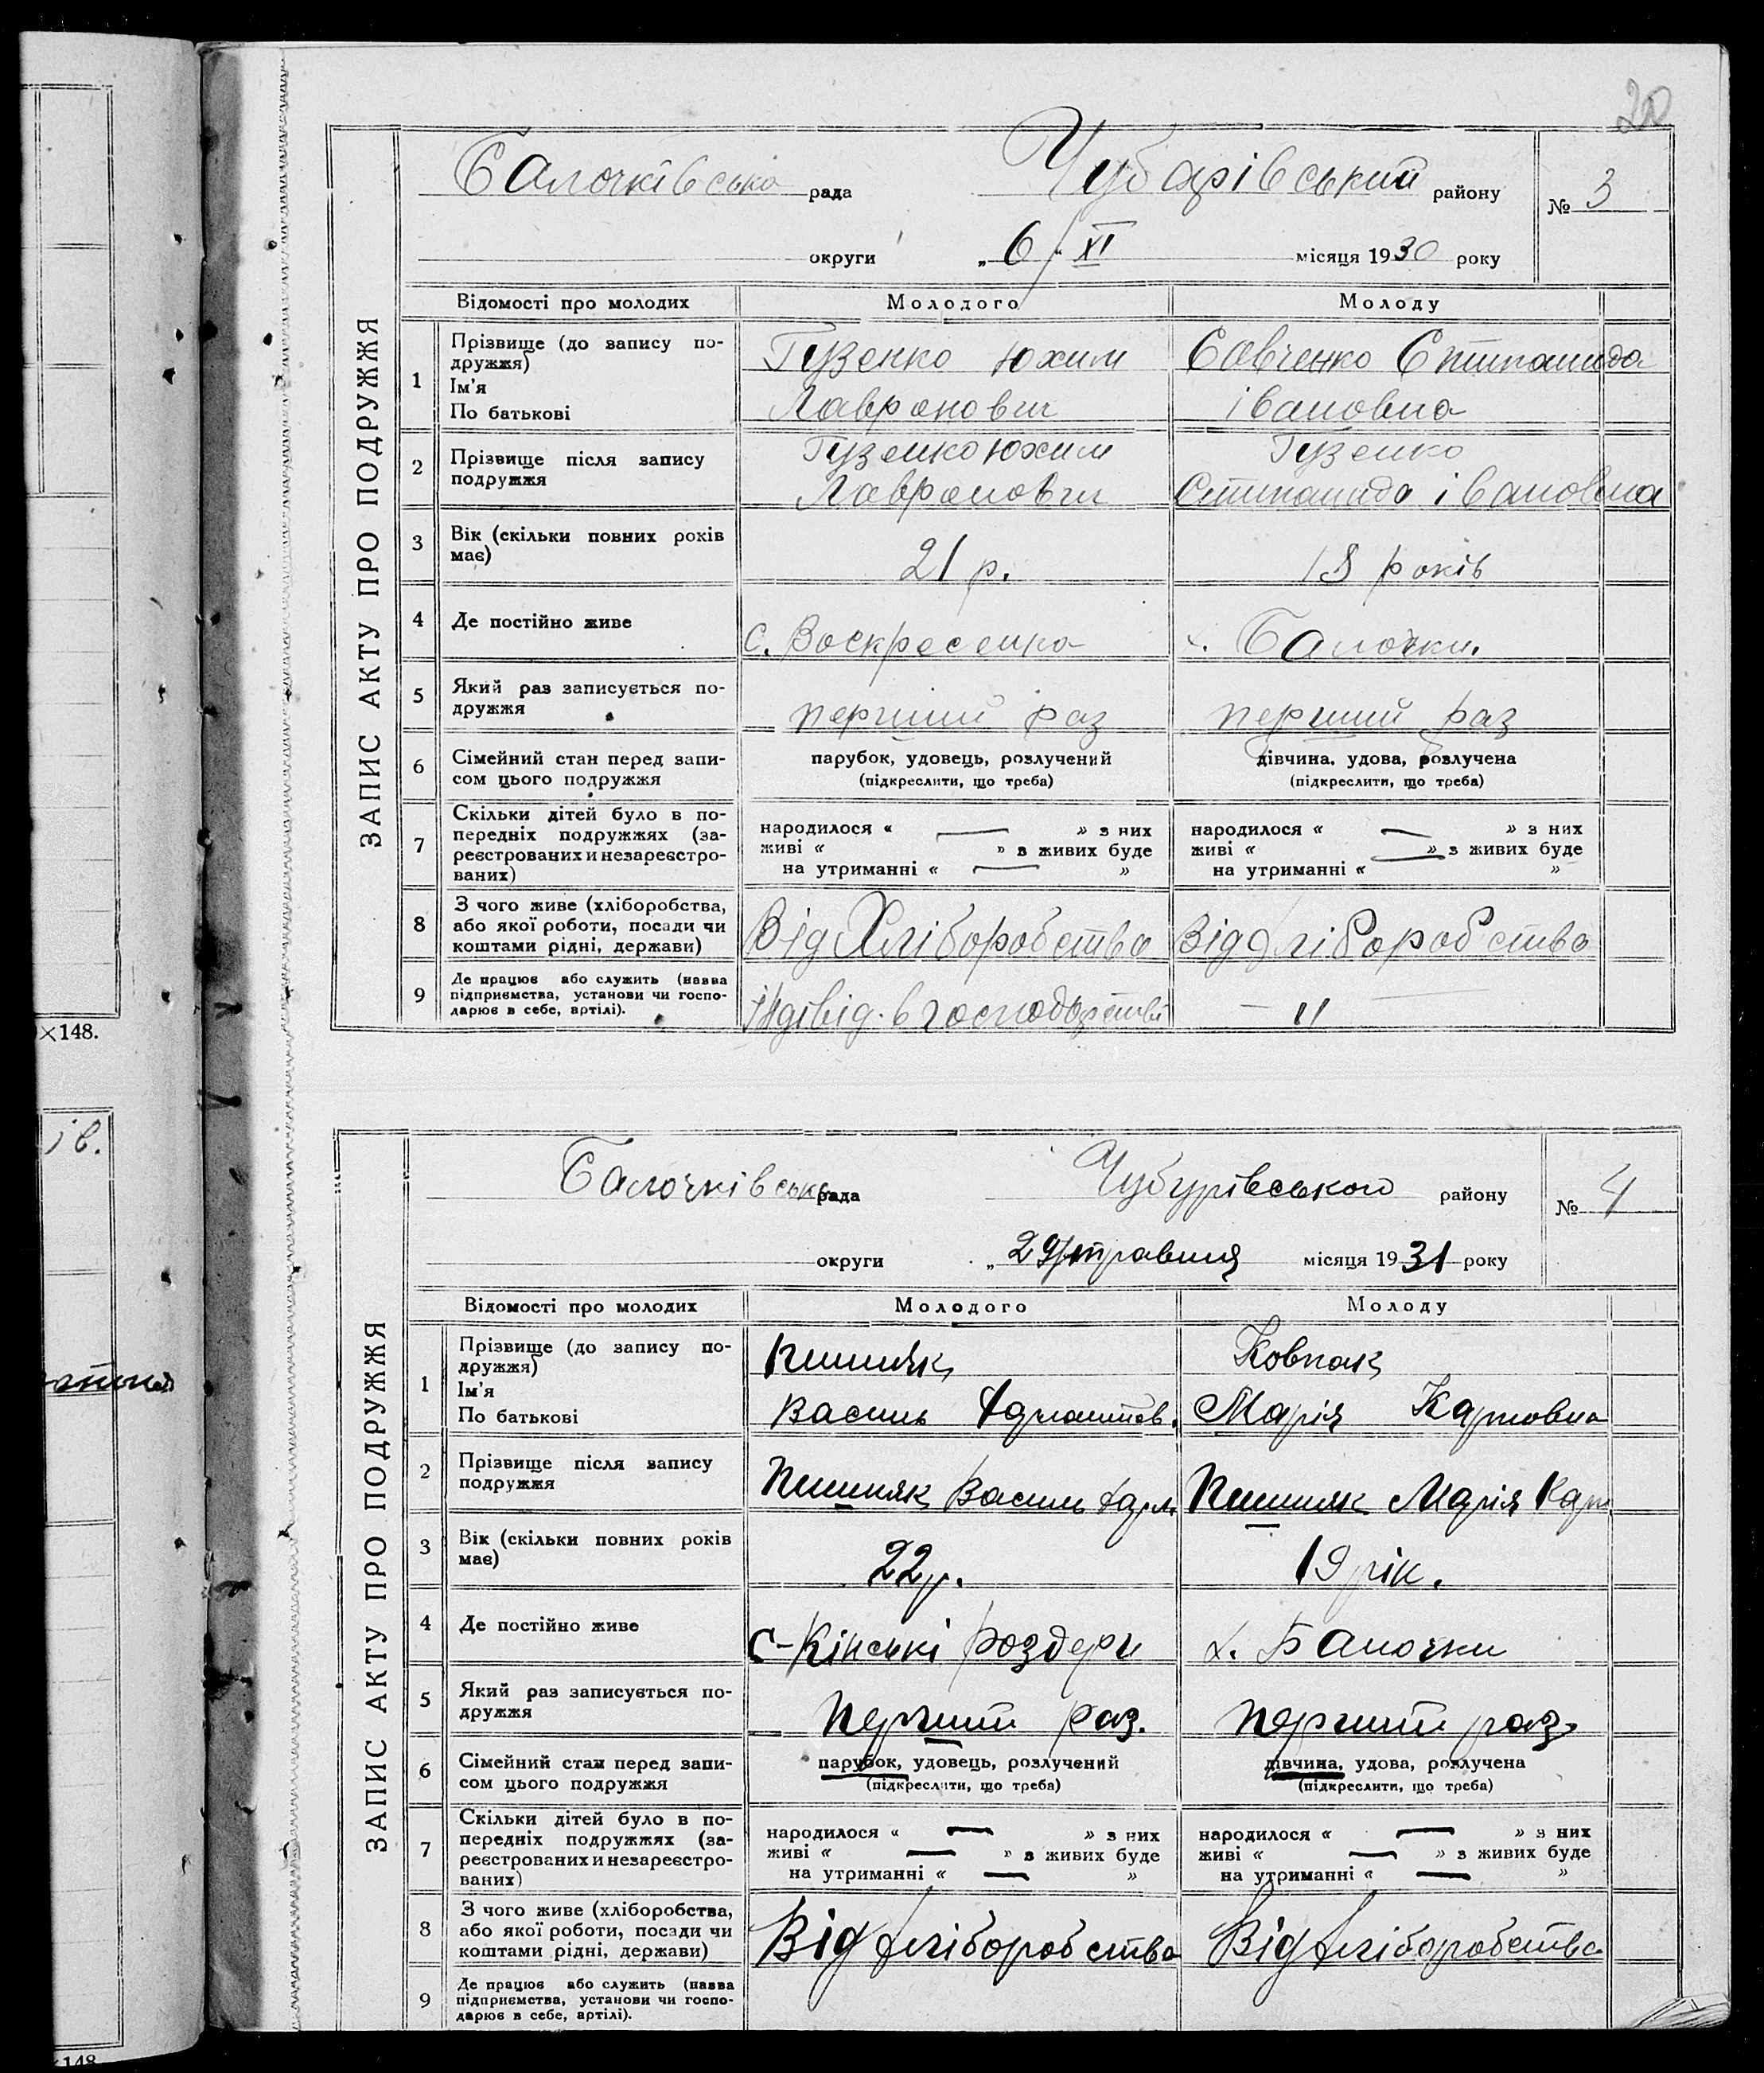 20
ЗАПИС АКТУ ПРО ПОДРУЖЖЯ
Балочківська рада Чубарівський району № 3
округи „ 6 “ XI місяця 1930 року
Відомості про молодих Молодого Молоду
1 Прізвище (до запису подружжя) Ім'я По батькові
Гузенко Юхим Савченко Степанида
Лавранович Івановна
2 Прізвище після запису подружжя
Гузенко Юхим Гузенко
Лавранович Степанида Івановна
3 Вік (скільки повних років має) 21 р. 18 років
4 Де постійно живе с. Воскресенка х. Балочки.
5 Який раз записується подружжя перший раз перший раз
6 Сімейний стан перед записом цього подружжя парубок, удовець, розлучений дівчина, удова, розлучена
(підкреслити, що треба) (підкреслити, що треба)
7 Скільки дітей було в попередніх подружжях (зареєстрованих и незареєстрованих)
народилося « — » з них народилося « — » з них
живі « » з живих буде живі « — » з живих буде
на утриманні « — » на утриманні « »
8 З чого живе (хліборобства, або якої роботи, посади чи коштами рідні, держави) Від Хліборобства Від хліборобства
9 Де працює або служить (назва підприємства, установи чи господарює в себе, артілі). індівід. в господарстві — 〃 —
×148.
ів.
ЗАПИС АКТУ ПРО ПОДРУЖЖЯ
Балочківська рада Чубурівського району № 4
округи „ 29/травня місяця 1931 року
Відомості про молодих Молодого Молоду
1 Прізвище (до запису подружжя) Ім'я По батькові
Ковпак
Василь Марія Карповна
2 Прізвище після запису подружжя
Василь Марія Карп
3 Вік (скільки повних років має) 22 р. 19 рік.
4 Де постійно живе С-Кінські роздори х. Балочки
5 Який раз записується подружжя перший раз. перший раз.
6 Сімейний стан перед записом цього подружжя парубок, удовець, розлучений дівчина, удова, розлучена
(підкреслити, що треба) (підкреслити, що треба)
7 Скільки дітей було в попередніх подружжях (зареєстрованих и незареєстрованих)
народилося « — » з них народилося « — » з них
живі « — » з живих буде живі « — » з живих буде
на утриманні « — » на утриманні « — »
8 З чого живе (хліборобства, або якої роботи, посади чи коштами рідні, держави) Від хліборобства Від хліборобства
9 Де працює або служить (назва підприємства, установи чи господарює в себе, артілі).
×148